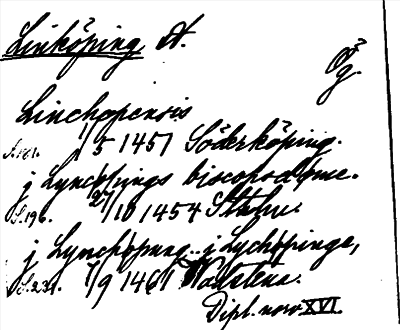 Linköping st.
Ög.
Linchopensis
S.181. 1/5 1451 Söderköping.
j Lynchøpings biscopsdøme.
S.196. 27/10 1454 Sthlm.
j Lynchøpung, j Lychøpinge,
S.231. 7/9 1461 Vadstena.
Dipl. norv. XVI.